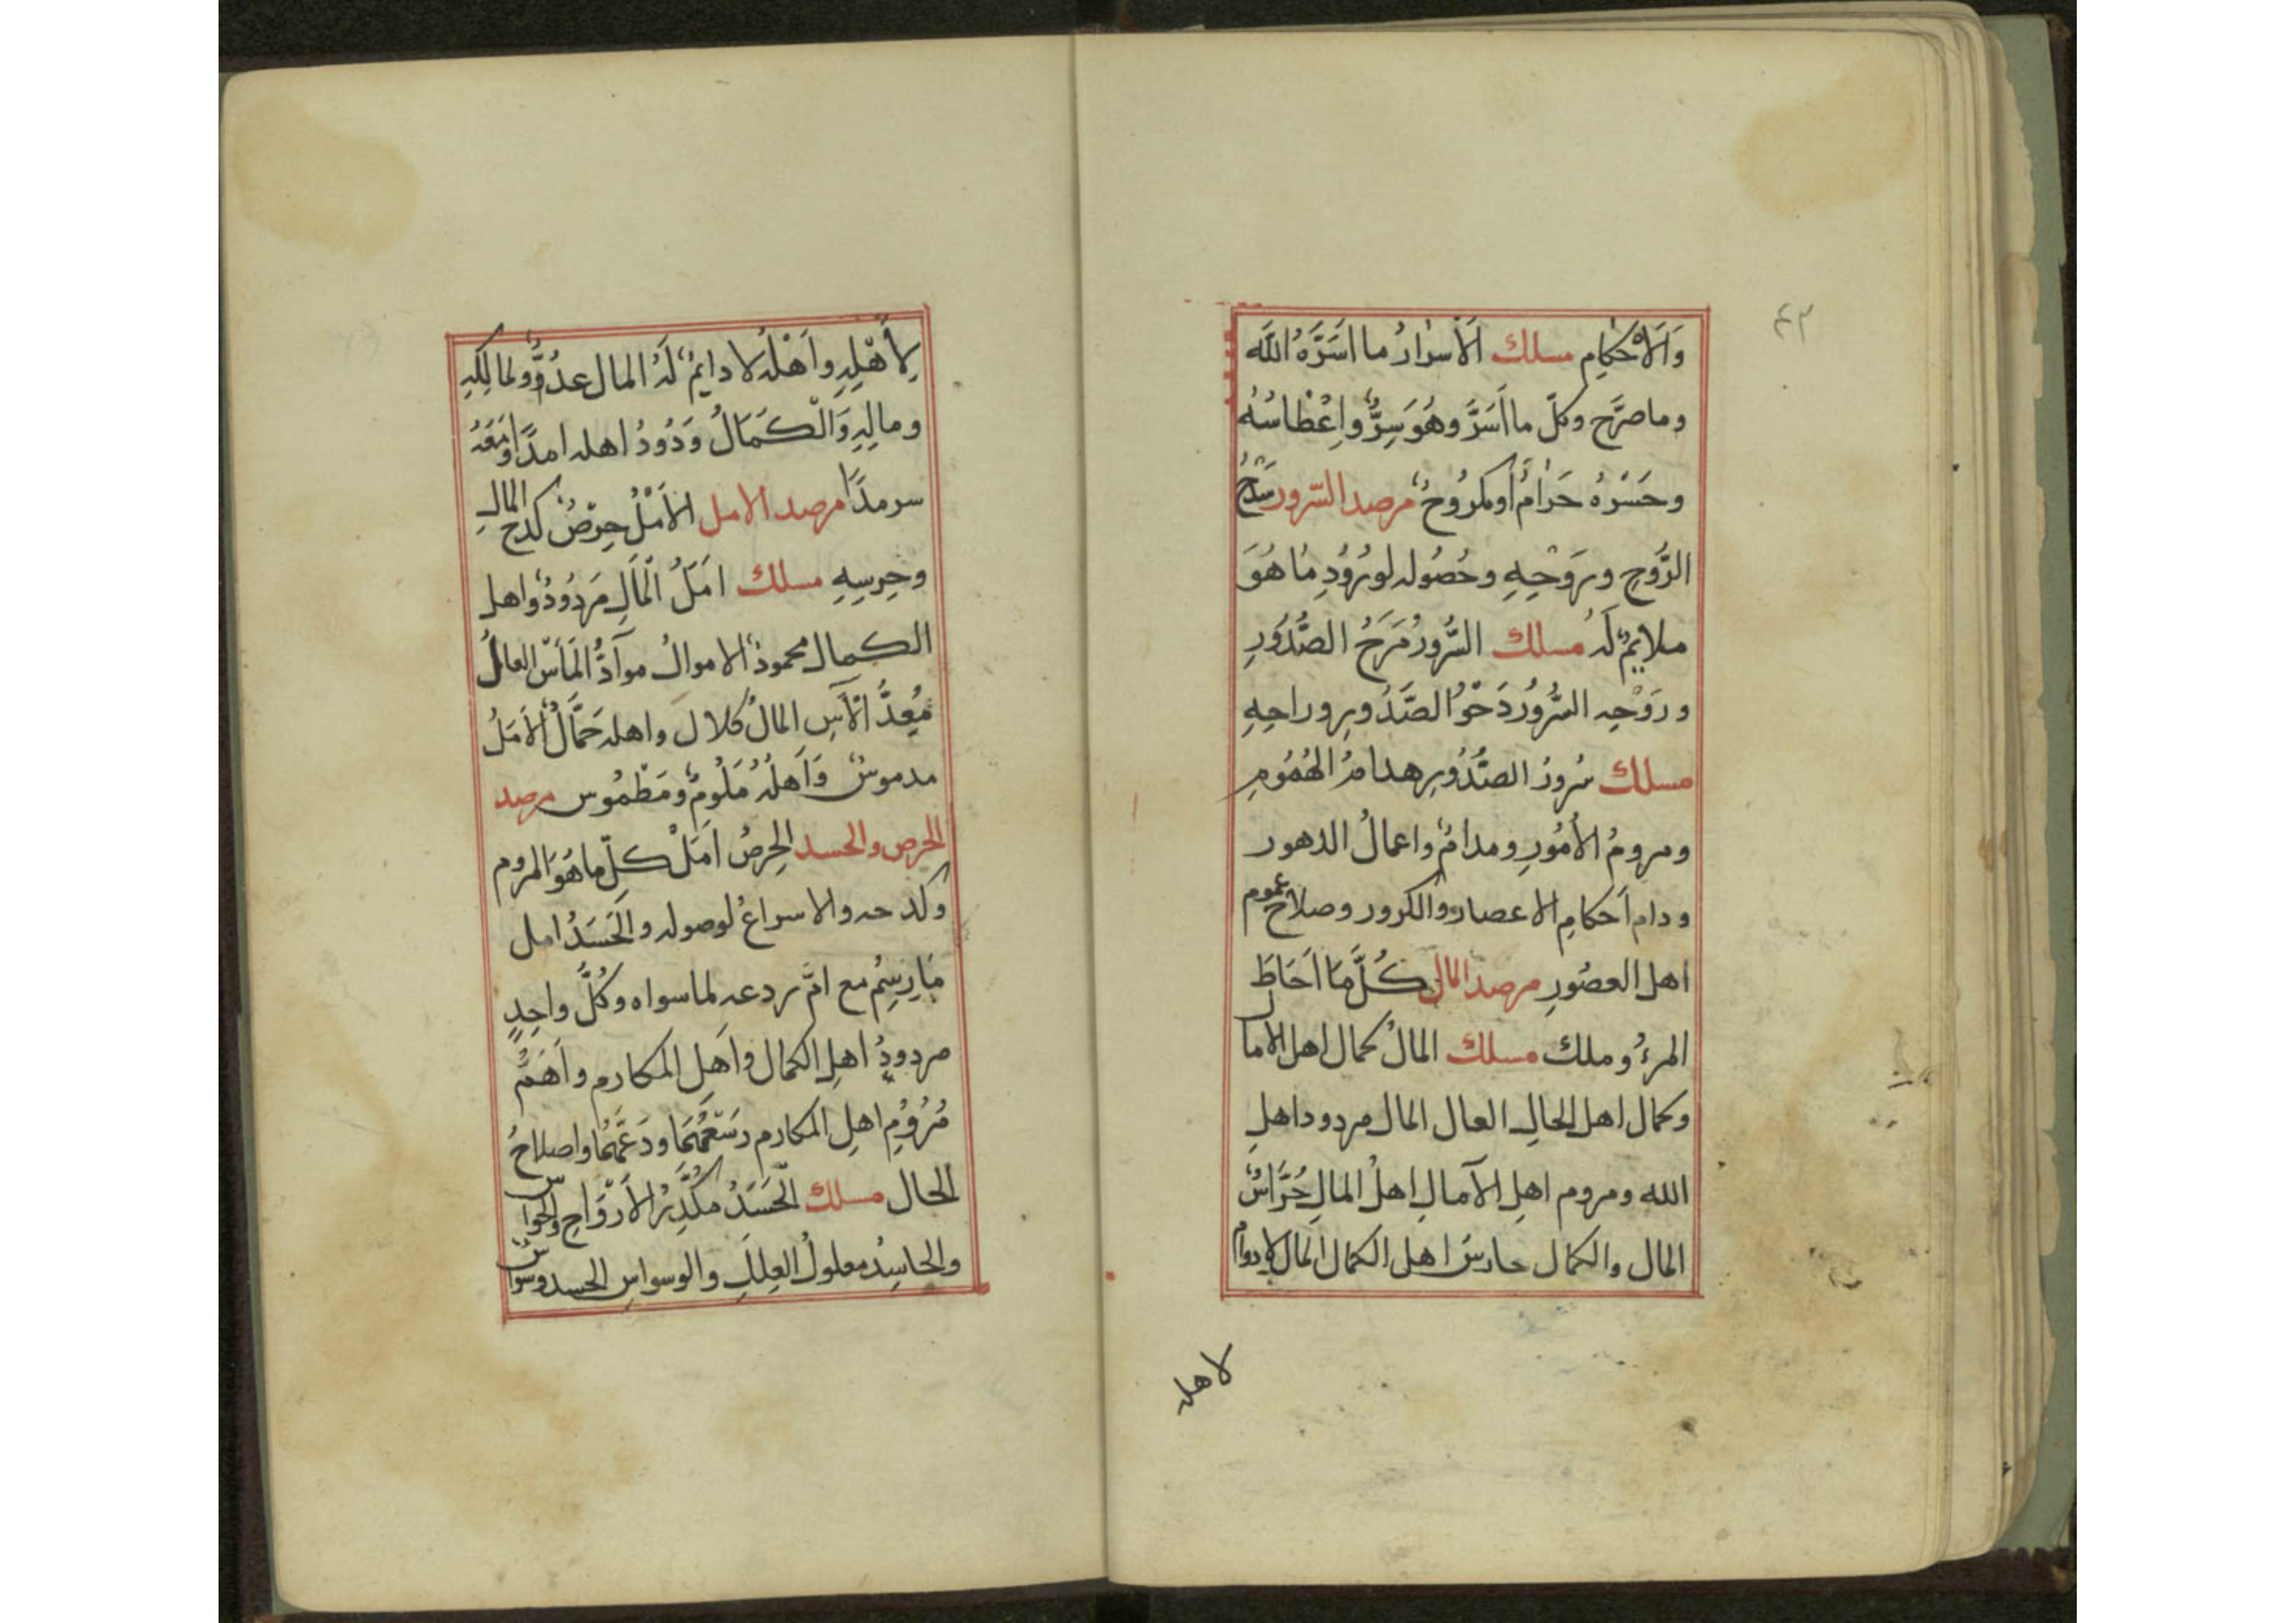 ٤٢
وَالَاحْكامِ مسلك اَلْاَسرارُ ما اَسَرَّهُ اللّٰه
وما صرَّح وكلّ ما اَسَرَّ وهُوَ سِرٌّ واِعْطاسُهُ
وحَسْرُهُ حَرامٌ اَومكرُوحٌ مرصد السّرور سَرْحُ
الرُّوحِ وروَحِهِ وحُصُوله لورُودِ ما هُوَ
ملايمٌ لَهُ مسلك السُّرورُ مَرَحُ الصُّدُورِ
ورَوْحِه السُّرُورُ دَحْوُ الصَّدُورِ وراحِهِ
مسلك سُرورُ الصُّدُورِ هدامُ الهُمُومِ
ومرومُ الأُمُورِ ومدامٌ واعمالُ الدهور
ودام اَحكامِ الاعصار والكرور وصلاح عموم
اهل العصُورِ مرصد المال كُلُّ مَا اَحَاطَ
المرءُ وملك مسلك المالُ كمال اهل الاما
ل
وكمال اهل الحالِ العال المال مردود اهلِ
الله ومروم اهلِ الآمالِ اهلُ المالِ حُرَّاسُ
المال والكمال حارسُ اهل الكمال المال لا دوام
لاهله
لِأَهْلِهِ واَهْلُه لا دايمٌ لَهُ المال عدُوٌّ ولمالِكِهِ
ومالِهِ وَالْكَمَالُ وَدُودُ اهله امدًا ومَعَهُ
سرمدًا مرصد الامل الاَمَلُ حِرْصُ كدحِ المالِ
وحِرسِهِ مسلك اَمَلُ الْمَالِ مَردُودٌ واهل
الكمال محمودٌ الاموالُ موآدُّ الْمَأس العاملُ
مُعِدُّ اْلآسِ المالُ كلالَ واهله حَمَّالٌ اَلاَمَلُ
مدموسٌ وَاَهلُهُ مَلُومٌ ومَطْمُوس مرصد
الحرص والحسد الحِرصُ اَمَلُ كلِّ ما هُوَ المروم
وكدحه والاسراعُ لوصوله والْحَسَدُ امل
مَا رسِمُ مع امّ ردعه لما سواه وكُلُّ واحِدٍ
مردودُ اهلِ الكمال واَهلِ المكارم واَهَمُّ
مُرُومِ اهلِ المكارم رَسَعُهُمَا ودَعُّهُمَا واصلاحُ
الحال مسلك اَلْحَسَدُ مكَدِّرُ الاَرْوَاحِ والحواس
والحاسِدُ معلولُ العِلَلِ والوسواسِ الحسد وسواسٌ